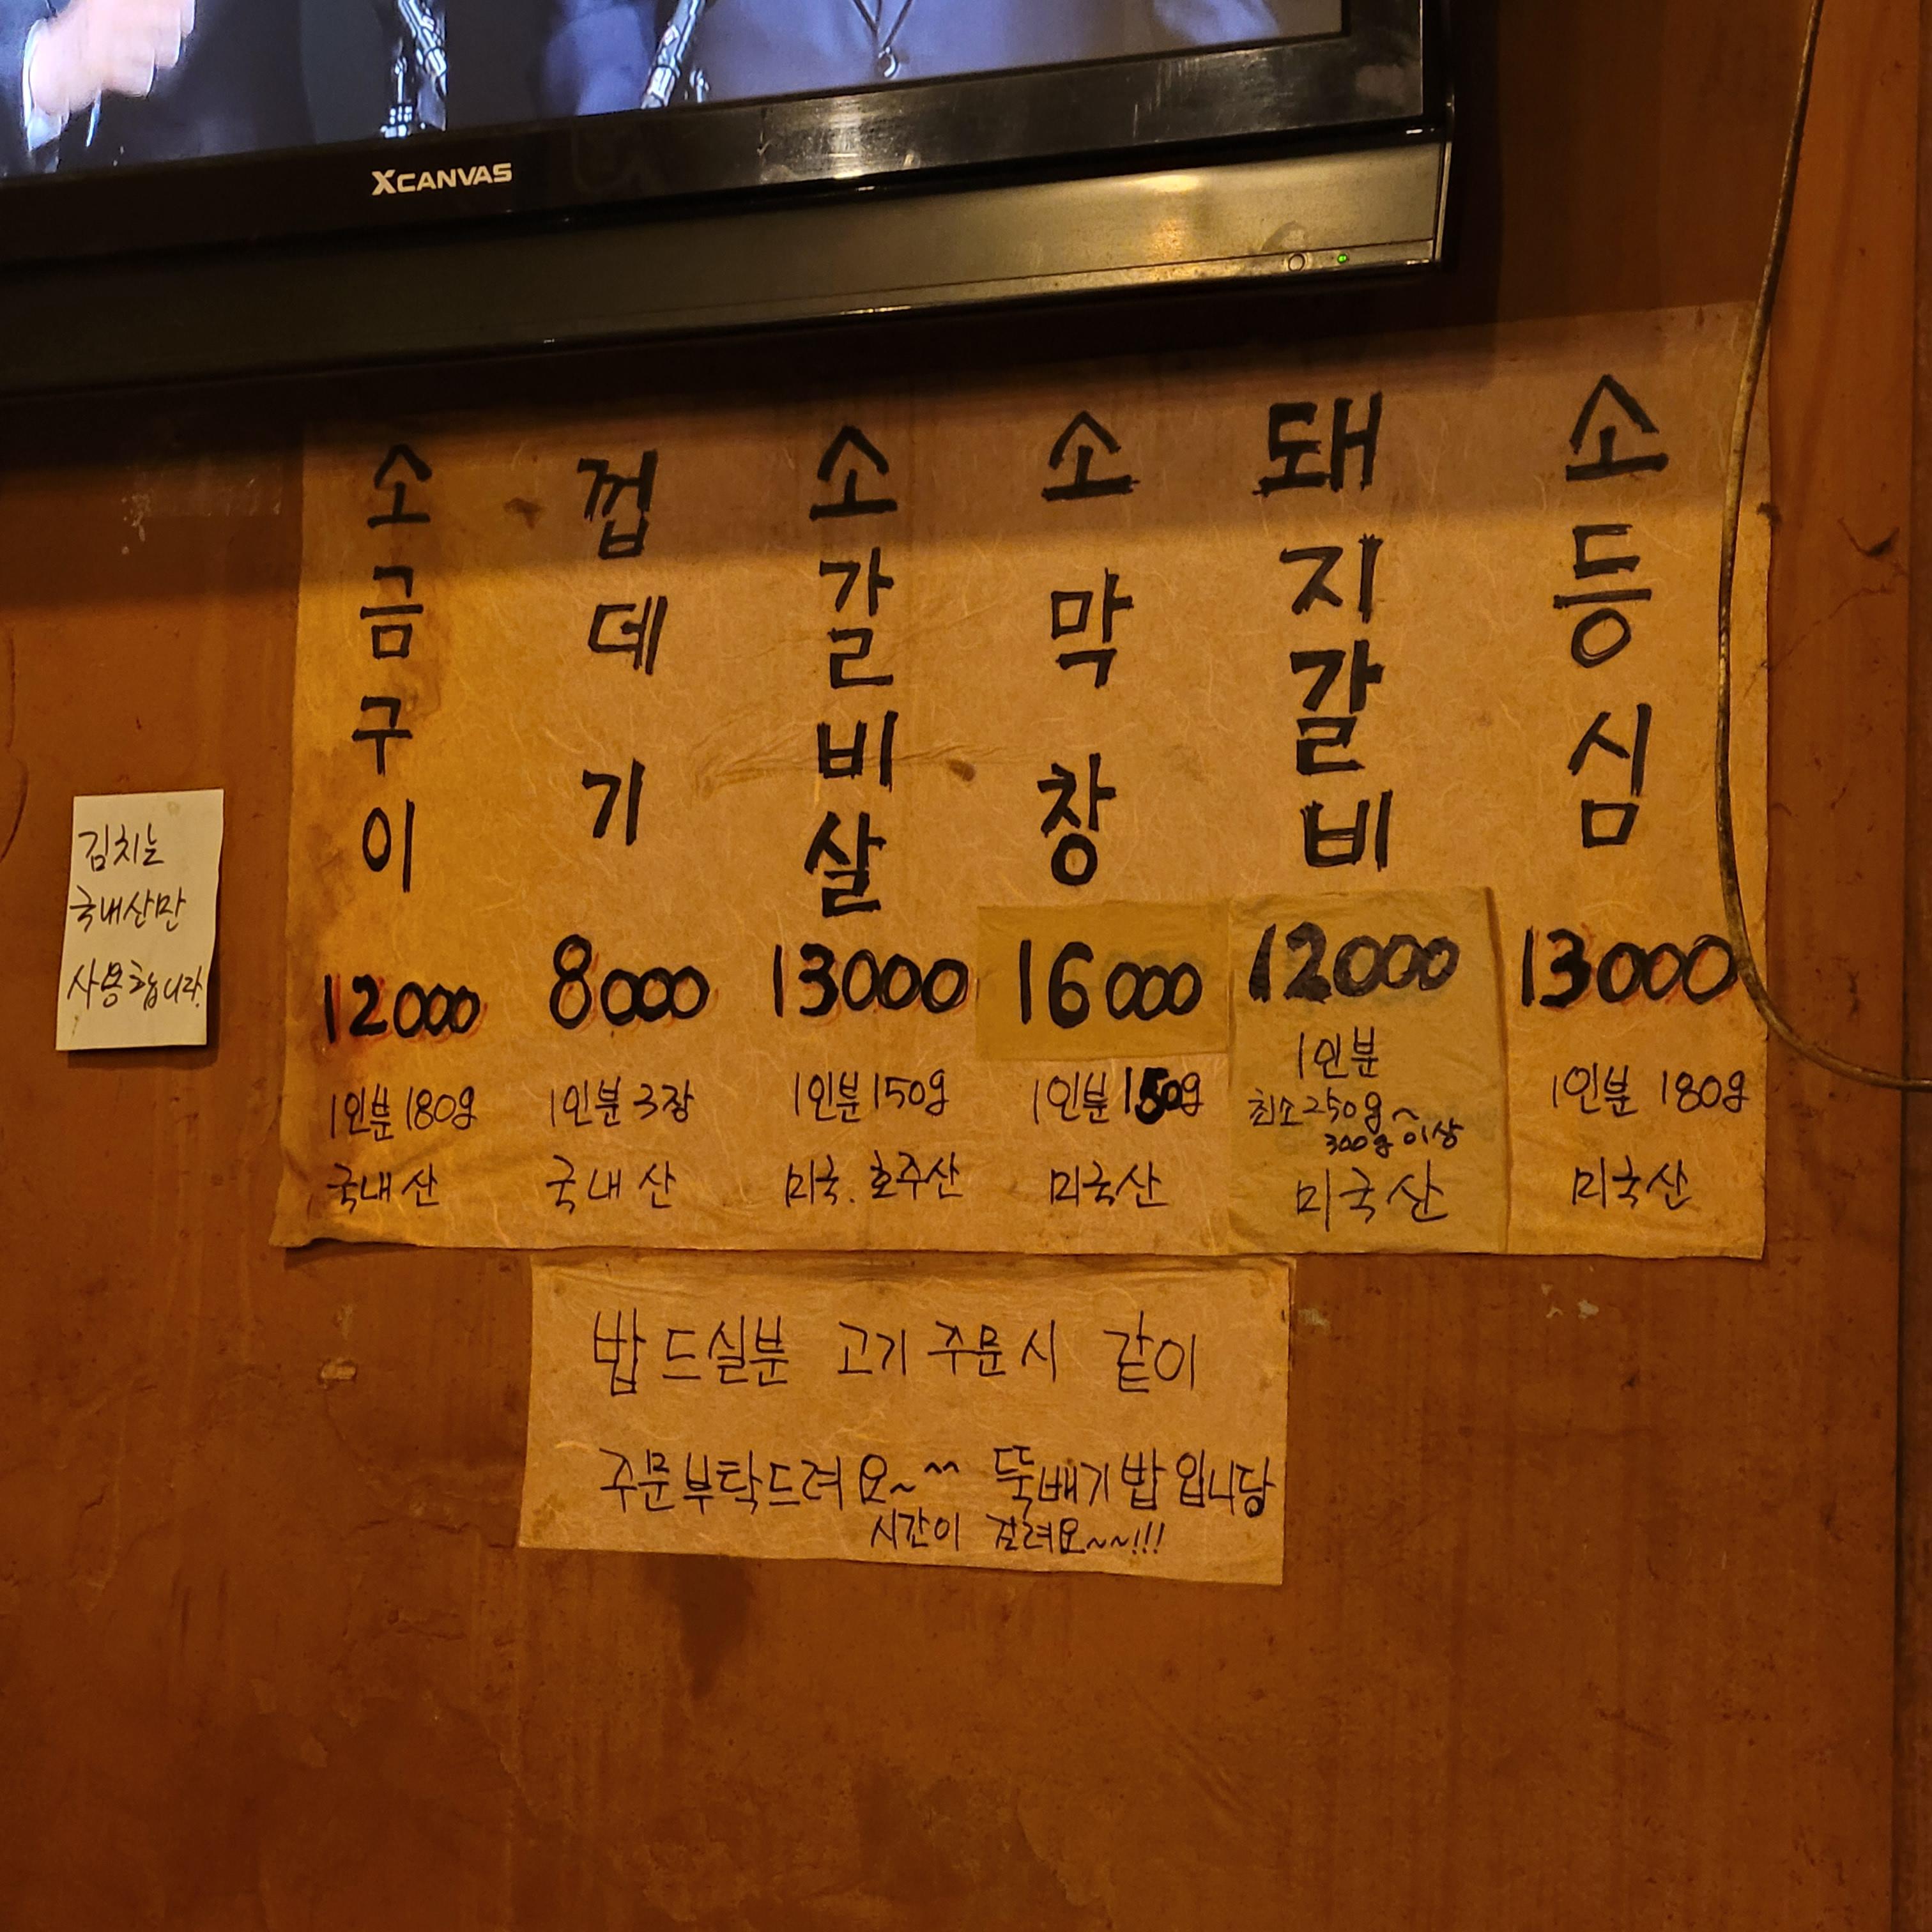 XCANVAS
소금구이
12000
1인분 180g
국내산
껍데기
8000
1인분 3장
국내산
소갈비살
13000
1인분 150g
미국. 호주산
소막창
16000
1인분 150g
미국산
돼지갈비
12000
1인분
최소 250g~
300g 이상
미국산
소등심
13000
1인분 180g
미국산
김치는
국내산만
사용합니다.
밥 드실분 고기 주문시 같이
주문부탁드려요~^^ 뚝배기밥입니당
시간이 걸려요~~!!!